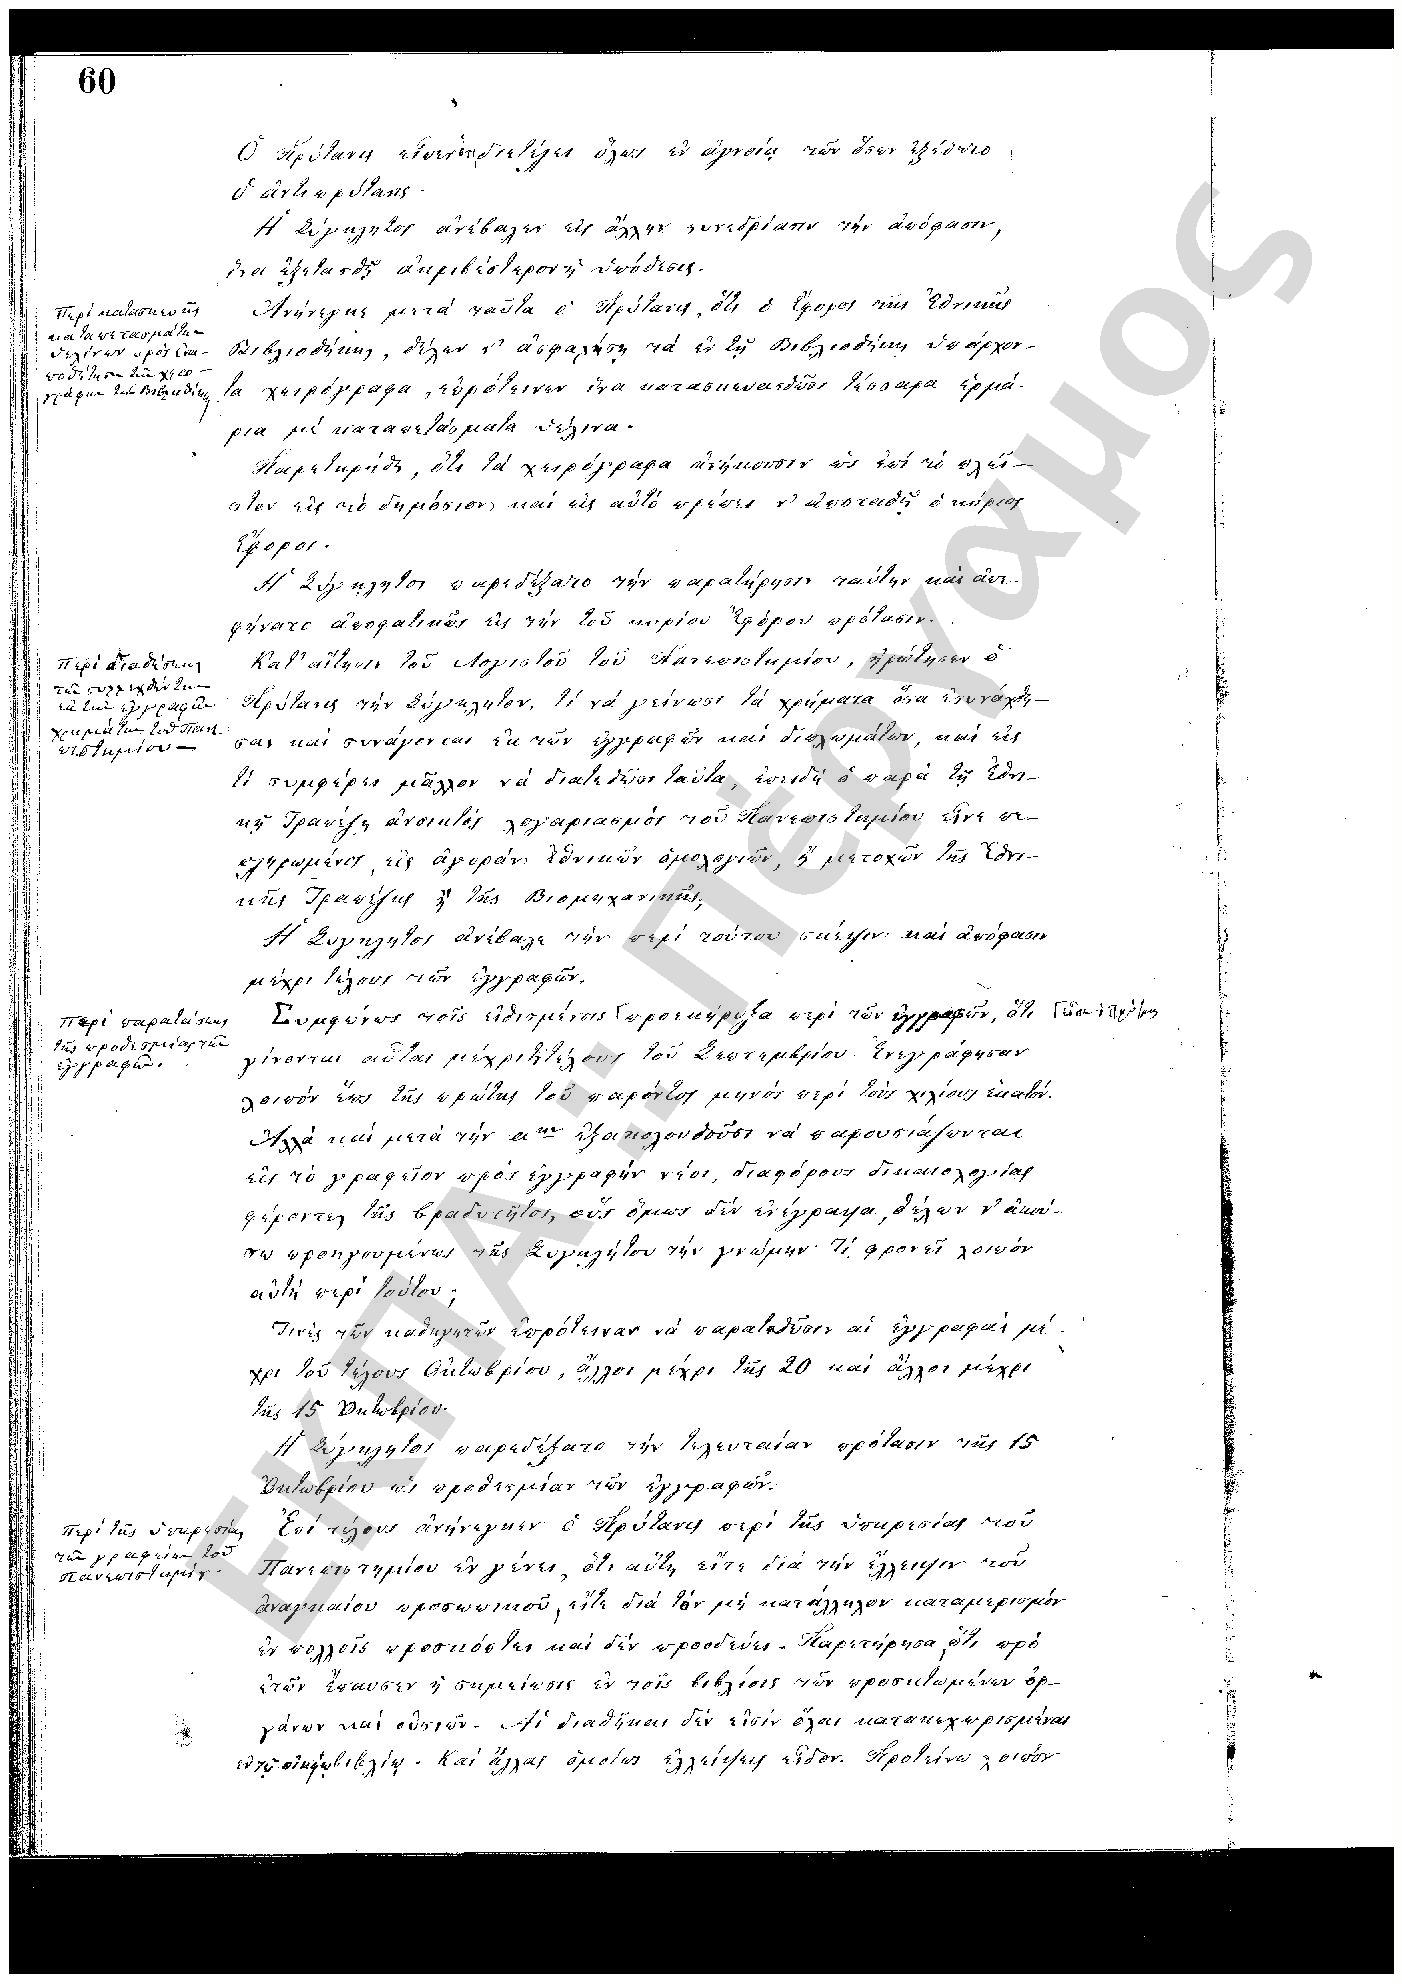 60
Ὁ Πρύτανις εἶπεν ὅτι διατελεῖ ὅλως ἐν ἀγνοίᾳ τῶν ὅσων ἐξέθετο
ὁ ἀντιπρύτανις.
Ἡ Σύγκλητος ἀνέβαλεν εἰς ἄλλην συνεδρίασιν τὴν ἀπόφασιν,
ἵνα ἐξετασθῇ ἀκριβέστερον ἡ ὑπόθεσις.
Περὶ κατασκευῆς
καταπετασμάτων
ὑελίνων πρὸς ἐνα-
ποθέτησιν τῶν χειρο-
γράφων τῆς Βιβλιοθήκης
Ἀνήνεγκε μετὰ ταῦτα ὁ Πρύτανις, ὅτι ὁ Ἔφορος τῆς Ἐθνικῆς
Βιβλιοθήκης, θέλων ν' ἀσφαλήσῃ τὰ ἐν τῇ Βιβλιοθήκῃ ὑπάρχον-
τα χειρόγραφα, ἐπρότεινεν ἵνα κατασκευασθῶσι τέσσαρα ἑρμά-
ρια μὲ καταπετάσματα ὑέλινα.
Παρετηρήθη, ὅτι τὰ χειρόγραφα ἀνήκουσιν ὡς ἐπὶ τὸ πλεῖ-
στον εἰς τὸ δημόσιον, καὶ εἰς αὐτὸ πρέπει ν' ἀποταθῇ ὁ κύριος
Ἔφορος.
Ἡ Σύγκλητος παρεδέξατο τὴν παρατήρησιν ταύτην καὶ ἀπε-
φήνατο ἀποφατικῶς εἰς τὴν τοῦ κυρίου Ἐφόρου πρότασιν.
Περὶ διαθέσεως
τῶν συλλεχθέντων
ἐκ τῶν ἐγγραφῶν
χρημάτων τοῦ Πανε-
πιστημίου
Κατ' αἴτησιν τοῦ Λογιστοῦ τοῦ Πανεπιστημίου, ἠρώτησεν ὁ
Πρύτανις τὴν Σύγκλητον, τί νὰ γείνωσι τὰ χρήματα ὅσα ἐσυνάχθη-
σαν καὶ συνάγονται ἐκ τῶν ἐγγραφῶν καὶ διπλωμάτων, καὶ εἰς
τί συμφέρει μᾶλλον νὰ διατεθῶσι ταῦτα, ἐπειδὴ ὁ παρὰ τῇ Ἐθνι-
κῇ Τραπέζῃ ἀνοικτὸς λογαριασμὸς τοῦ Πανεπιστημίου εἶνε πε-
πληρωμένος, εἰς ἀγορὰν Ἐθνικῶν ὁμολογιῶν, ἢ μετοχῶν τῆς Ἐθνι-
κῆς Τραπέζης ἢ τῆς Βιομηχανικῆς;
Ἡ Σύγκλητος ἀνέβαλε τὴν περὶ τούτου σκέψιν καὶ ἀπόφασιν
μέχρι τέλους τῶν ἐγγραφῶν.
Περὶ παρατάσεως
τῆς προθεσμίας τῶν
ἐγγραφῶν.
Συμφώνως τοῖς εἰθισμένοις προεκήρυξα περὶ τῶν ἐγγραφῶν, ὅτι
γίνονται αὗται μέχρι τέλους τοῦ Σεπτεμβρίου. Ἐνεγράφησαν
λοιπὸν ἕως τῆς πρώτης τοῦ παρόντος μηνὸς περὶ τοὺς χιλίους ἑκατόν.
Ἀλλὰ καὶ μετὰ τὴν αην ἐξακολουθοῦσι νὰ παρουσιάζωνται
εἰς τὸ γραφεῖον πρὸς ἐγγραφὴν νέοι, διαφόρους δικαιολογίας
φέροντες τῆς βραδύτητος, οὓς ὅμως δὲν ἐνέγραψα, θέλων ν' ἀκού-
σω προηγουμένως τῆς Συγκλήτου τὴν γνώμην. Τί φρονεῖ λοιπὸν
αὐτὴ περὶ τούτου;
Τινὲς τῶν καθηγητῶν ἐπρότειναν νὰ παραταθῶσιν αἱ ἐγγραφαὶ μέ-
χρι τοῦ τέλους Ὀκτωβρίου, ἄλλοι μέχρι τῆς 20 καὶ ἄλλοι μέχρι
τῆς 15 Ὀκτωβρίου.
Ἡ Σύγκλητος παρεδέξατο τὴν τελευταίαν πρότασιν τῆς 15
Ὀκτωβρίου ὡς προθεσμίαν τῶν ἐγγραφῶν.
Περὶ τῆς ὑπηρεσίας
τῶν γραφείων τοῦ
Πανεπιστημίου.
Ἐπὶ τέλους ἀνήνεγκεν ὁ Πρύτανις περὶ τῆς ὑπηρεσίας τοῦ
Πανεπιστημίου ἐν γένει, ὅτι αὕτη εἴτε διὰ τὴν ἔλλειψιν τοῦ
ἀναγκαίου προσωπικοῦ, εἴτε διὰ τὸν μὴ κατάλληλον καταμερισμὸν
ἐν πολλοῖς προσκόπτει καὶ δὲν προοδεύει. Παρετήρησα ὅτι πρὸ
ἐτῶν ἔπαυσεν ἡ σημείωσις ἐν τοῖς βιβλίοις τῶν προσκτωμένων ὀρ-
γάνων καὶ οὐσιῶν. Αἱ διαθῆκαι δὲν εἰσὶν ὅλαι κατακεχωρισμέναι
ἐν τῷ οἰκείῳ βιβλίῳ. Καὶ ἄλλας ὁμοίως ἐλλείψεις εἶδον. Προτείνω λοιπὸν
ΕΚΠΑ:: Πέργαμος